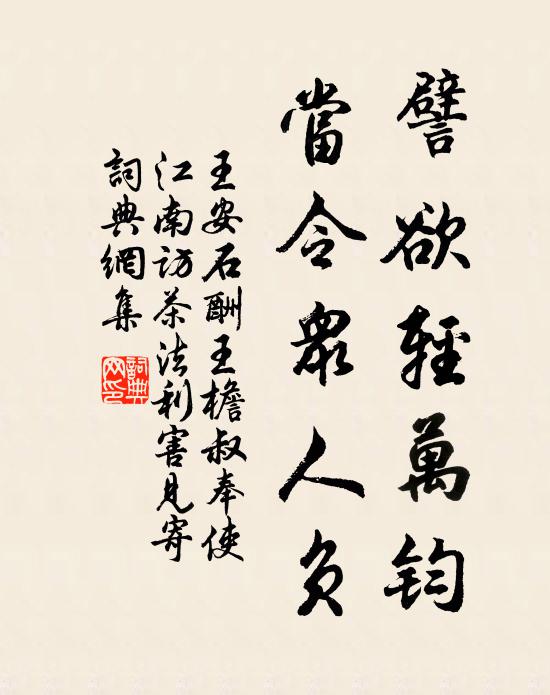 譬欲輕萬鈞
當令衆人負
王安石酬王檐叔奉使
江南訪茶法利害見寄
詞典網集
詞典網印